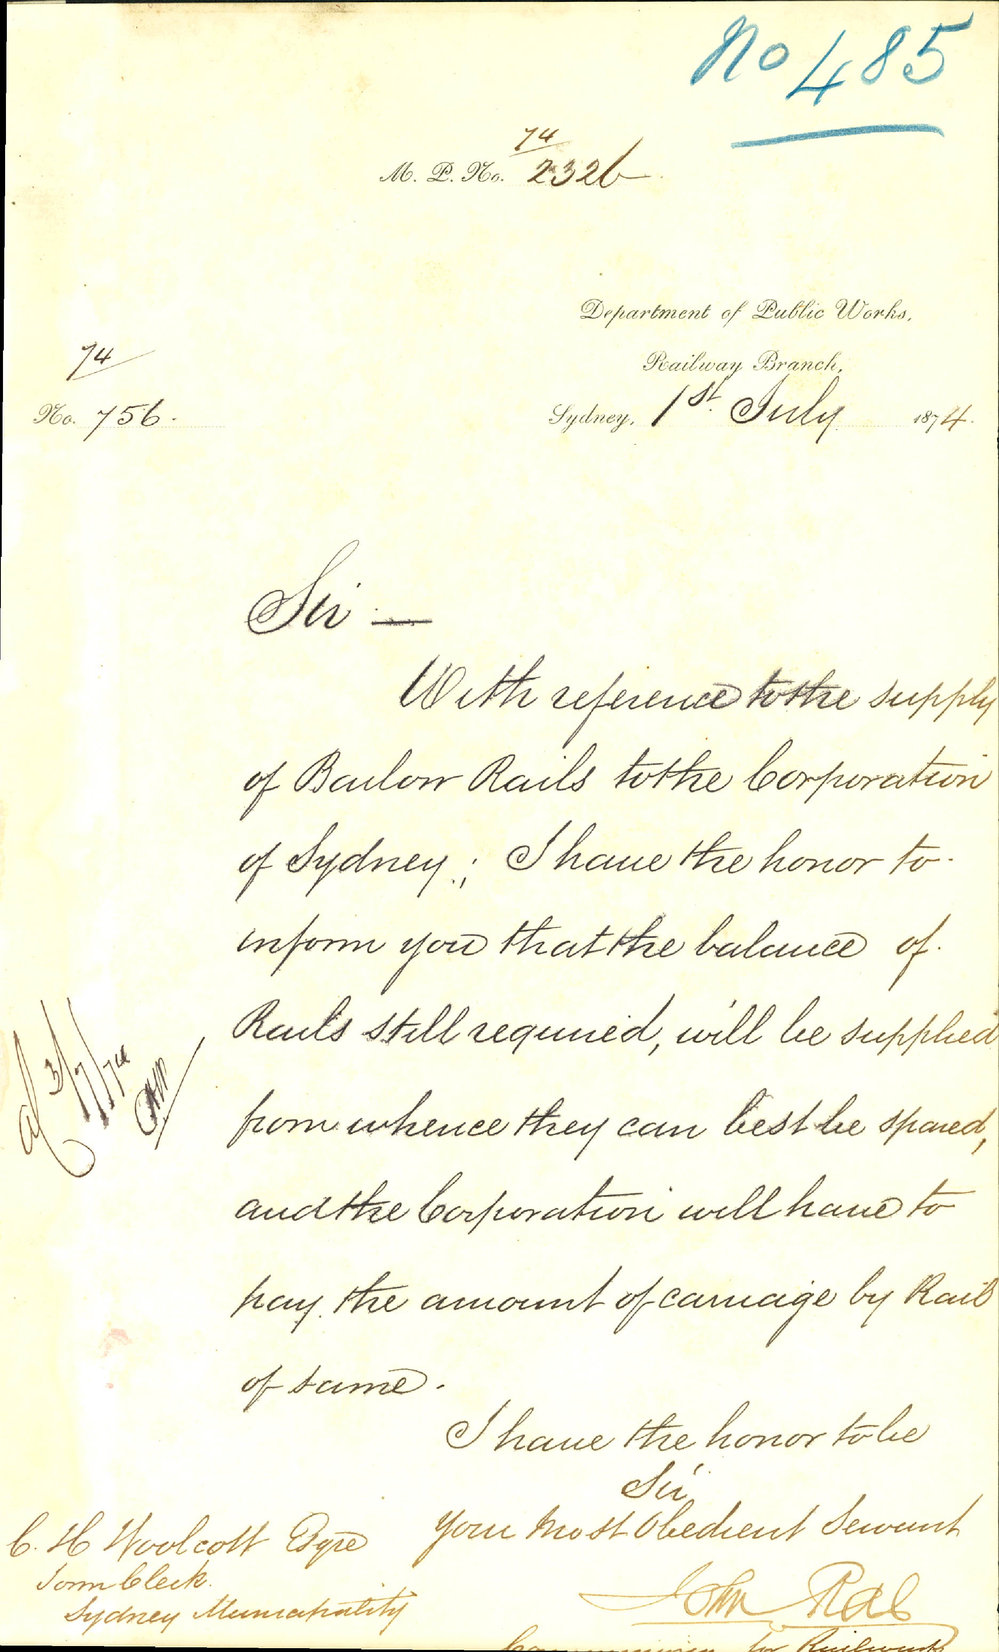 No 485
74
M. P. No. 2326
Department of Public Works,
Railway Branch,
74
No. 756.
Sydney, 1st July 1874.
Sir —
With reference to the supply
of Barlow Rails to the Corporation
of Sydney; I have the honor to
inform you that the balance of
Rails still required, will be supplied
from whence they can best be spared,
and the Corporation will have to
pay the amount of carriage by Rail
of same.
3/7/74
I have the honor to be
Sir
Your Most Obedient Servant
John Rae
Commissioner for Railways
C. H Woolcott Esqre
Town Clerk.
Sydney Municipality